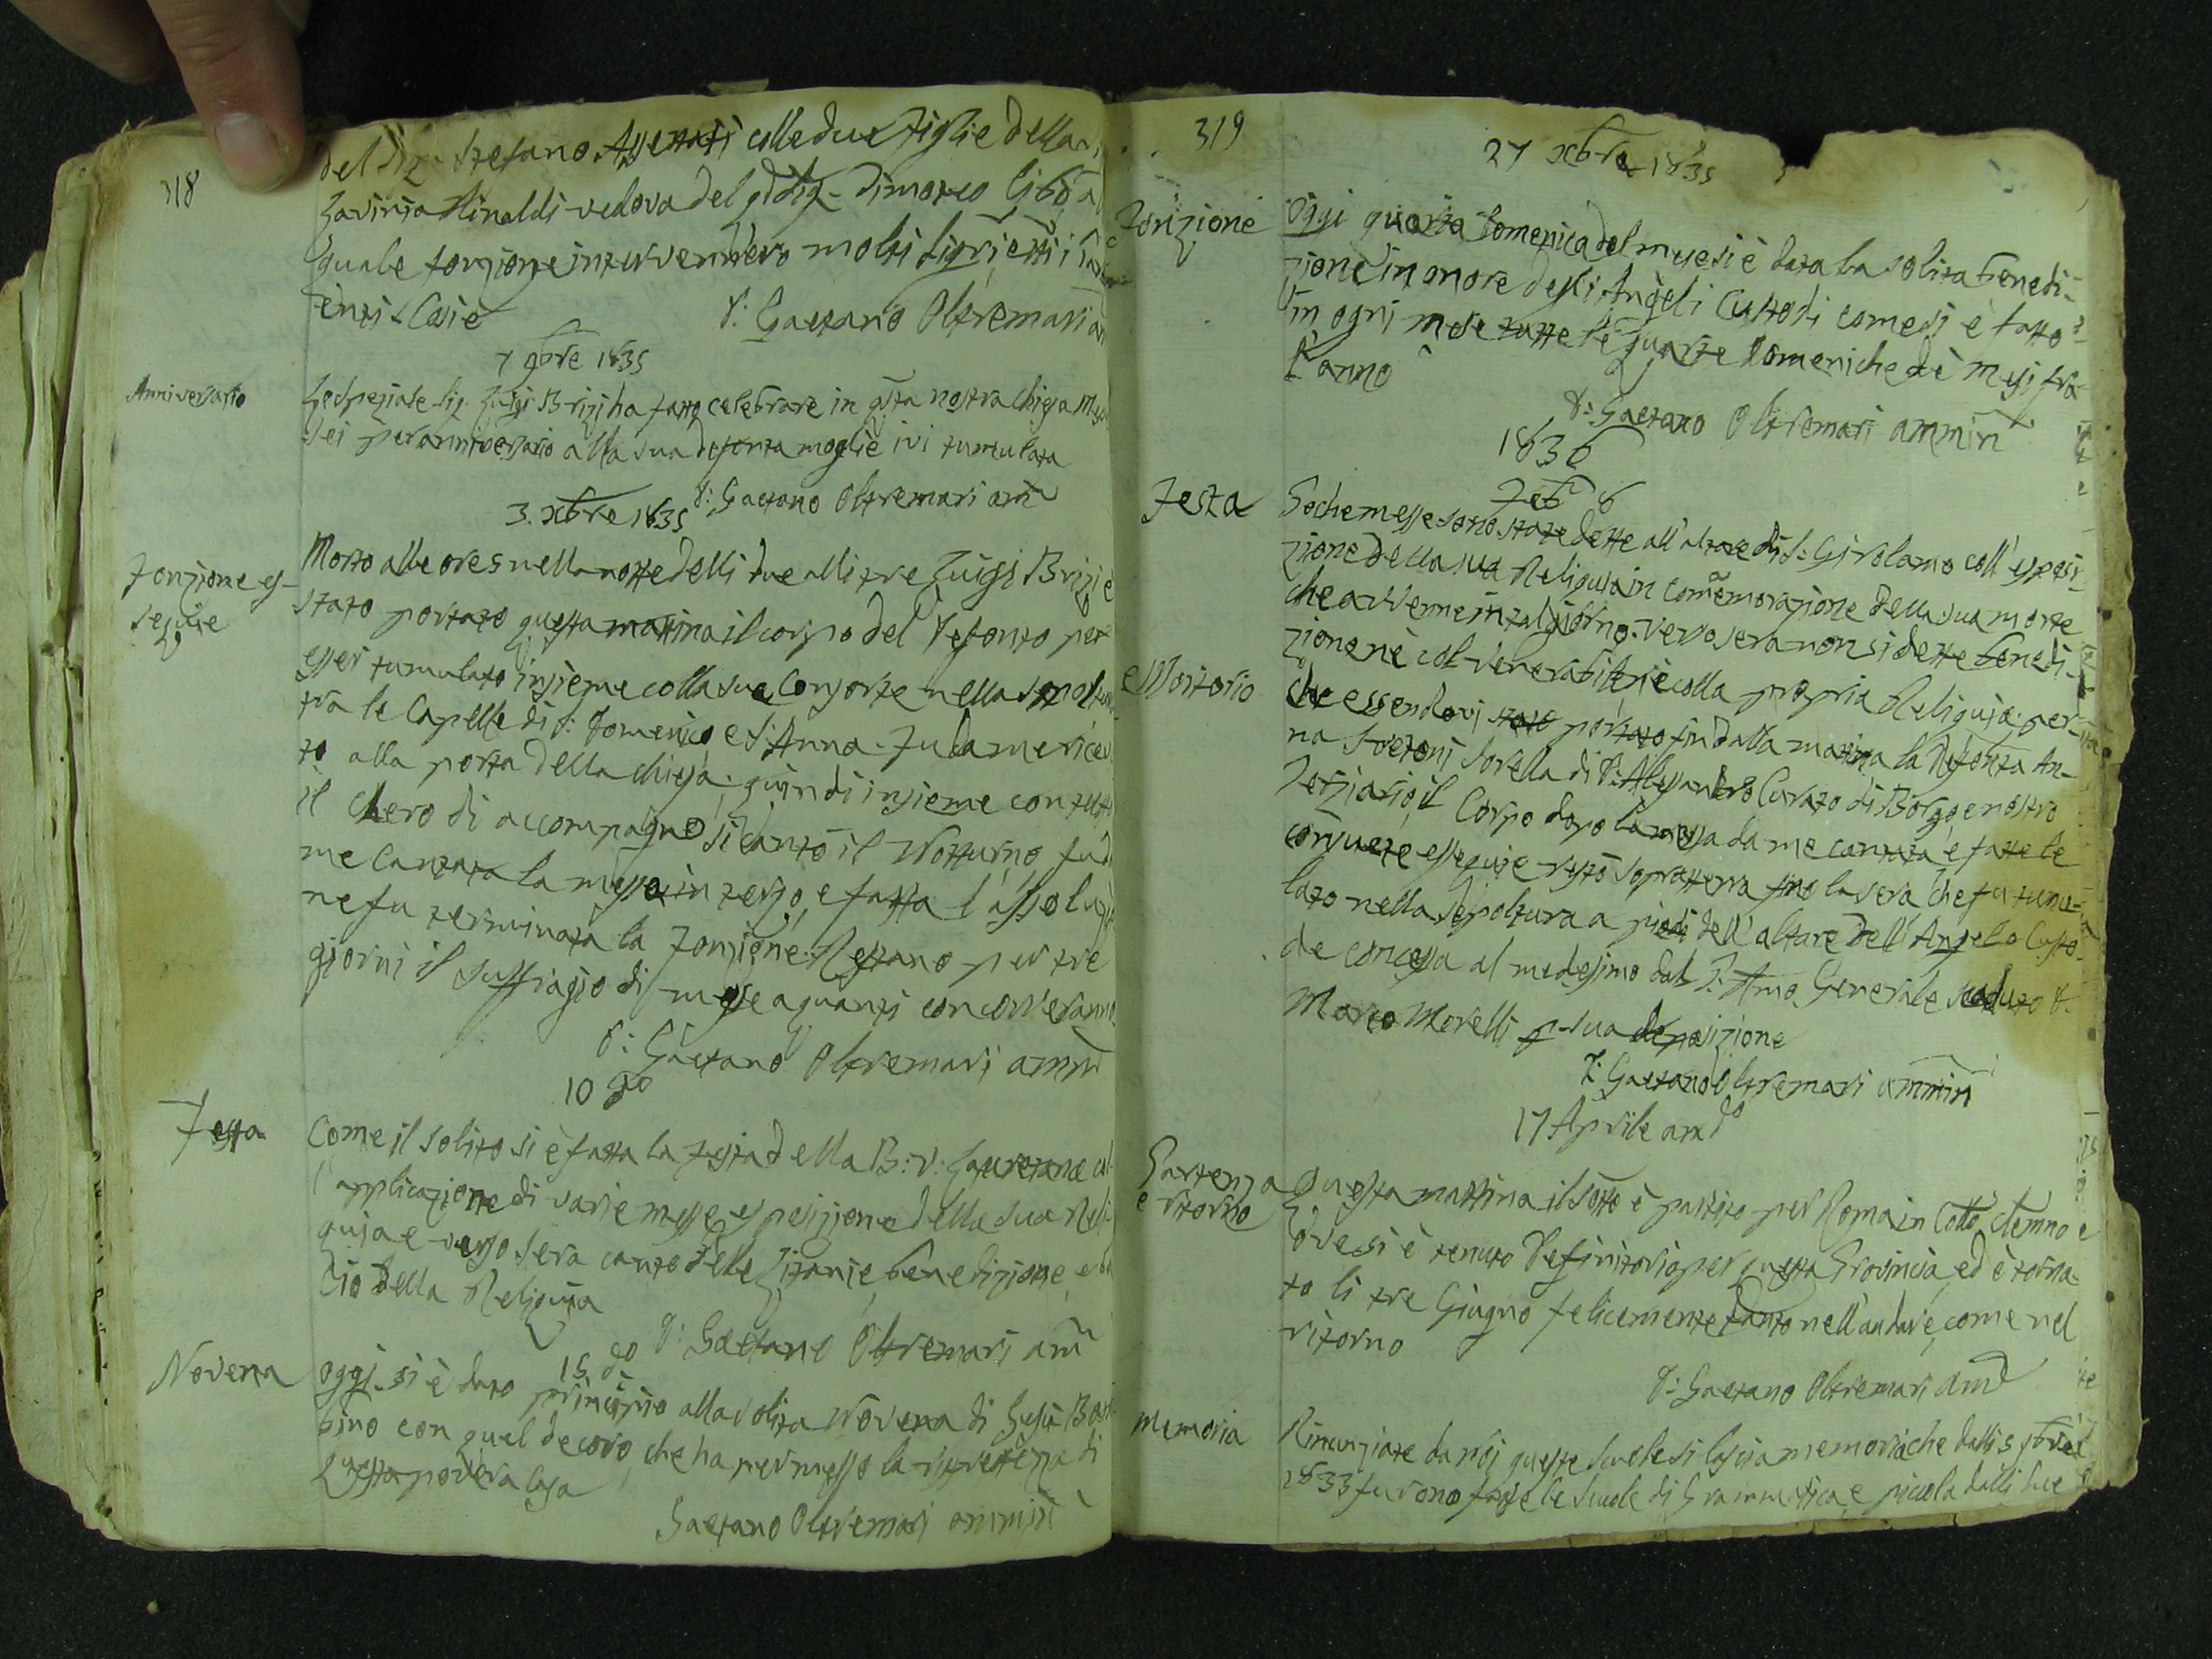 318
del Sig. Stefano Assettati colle due figlie della
Lavinia Rinaldi vedova del Sig. Dimoteo
quale fonzione intervennero molti
enti
P: Gaetano Oltremari am
7 9bre 1835
Anniversario
Lo Speziale Sig. Luigi Brizi ha fatto celebrare in qsta nostra Chiesa Messe
Sei per anniversario alla sua defonta moglie ivi tumulata
P: Gaetano Oltremari am
3. xbre 1835
Fonzione es-
sequie
Morto alle ore 5 nella notte delli due alli tre Luigi Brizi è
stato portato questa mattina il corpo del Defonto per
esser tumulato insieme colla sua Consorte nella
tra le Capelle di S: Domenico e S: Anna. Fu da me ricevu
to alla porta della chiesa; quindi insieme con tutto
il Clero di accompagno si cantò il Notturno, fu da
me cantata la messa in terzo, e fatta l'assoluzio
ne fu terminata la Fonzione. Restano per tre
giorni il suffragio di messe a quanti concorreranno
P: Gaetano Oltremari ammi
10 do
Festa
Come il solito si è fatta la Festa della B: V: Lauretana col
l'applicazione di varie messe esposizione della sua Reli
quia e verso sera canto delle Litanie, benedizione, e ba
cio della Reliquia
P: Gaetano Oltremari am
15 do
Novena
Oggi si è dato principio alla solita Novena di Gesù Bam
bino con quel decoro, che ha permesso la ristrettezza di
questa povera Casa
Gaetano Oltremari ammin
319
27 xbre 1835
Fonzione
Oggi quarta Domenica del mese si è data la solita benedi-
zione in onore degli Angeli Custodi come si è fatto
in ogni mese tutte le quarte Domeniche de mesi fra
l'anno
P: Gaetano Oltremari ammin
1836
Feb 8
Festa
Poche messe sono state dette all'altare di S: Girolamo coll'esposi-
zione della sua Reliquia in comemorazione della sua morte
che avvenne in tal giorno. Verso sera non si dette benedi-
zione nè col Venerabile nè colla propria Reliquia: per-
e Mortorio
che essendovi stato portato fin dalla mattina la Defonta An-
na Sorella di P: Alessandro Curato di Borgo e nostro
Terziario, il Corpo dopo la messa da me cantata, e fatte le
consuete essequie restò sopratterra fino la sera che fu tumu-
lato nella Sepoltura a piedi dell'altare dell'Angelo Custo-
de concessa al medesimo dal P: Generale scaduto P.
Marco Morelli p sua deposizione
P: Gaetano Oltremari ammin
17 Aprile an do
Partenza
e ritorno
Questa mattina il sotto è partito per Roma in
ove si è tenuto Definitorio per questa Provincia, ed è torna-
to li tre Giugno felicemente tanto nell'andare, come nel
ritorno
P: Gaetano Oltremari am
Memoria
Rinunziate da noi queste Scuole si lascia memoria che dalli 5 9bre
1833 furono fatte le Scuole di Grammatica, e piccola dalli due